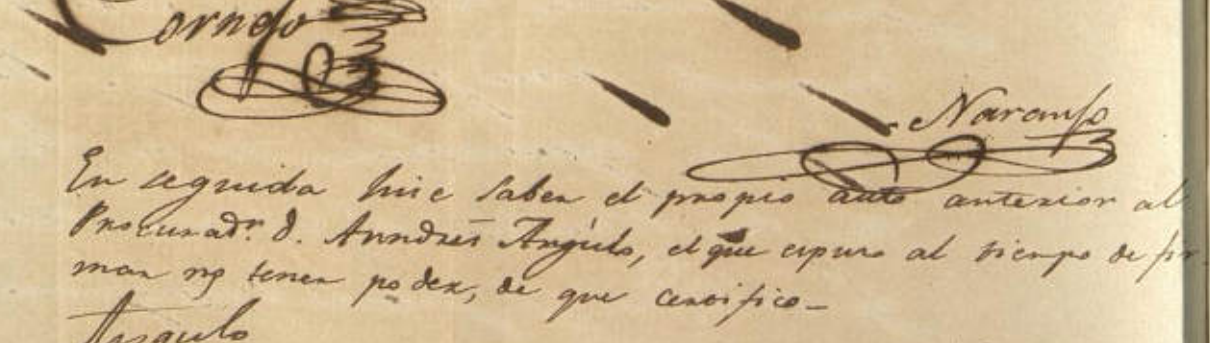 Cornejo
Naranjo
En seguida hice saber el propio auto anterior al
Procurador. D. Anndres Angulo, el que espuso al tiempo de fir
mar no tener poder, de que certifico_
Angulo